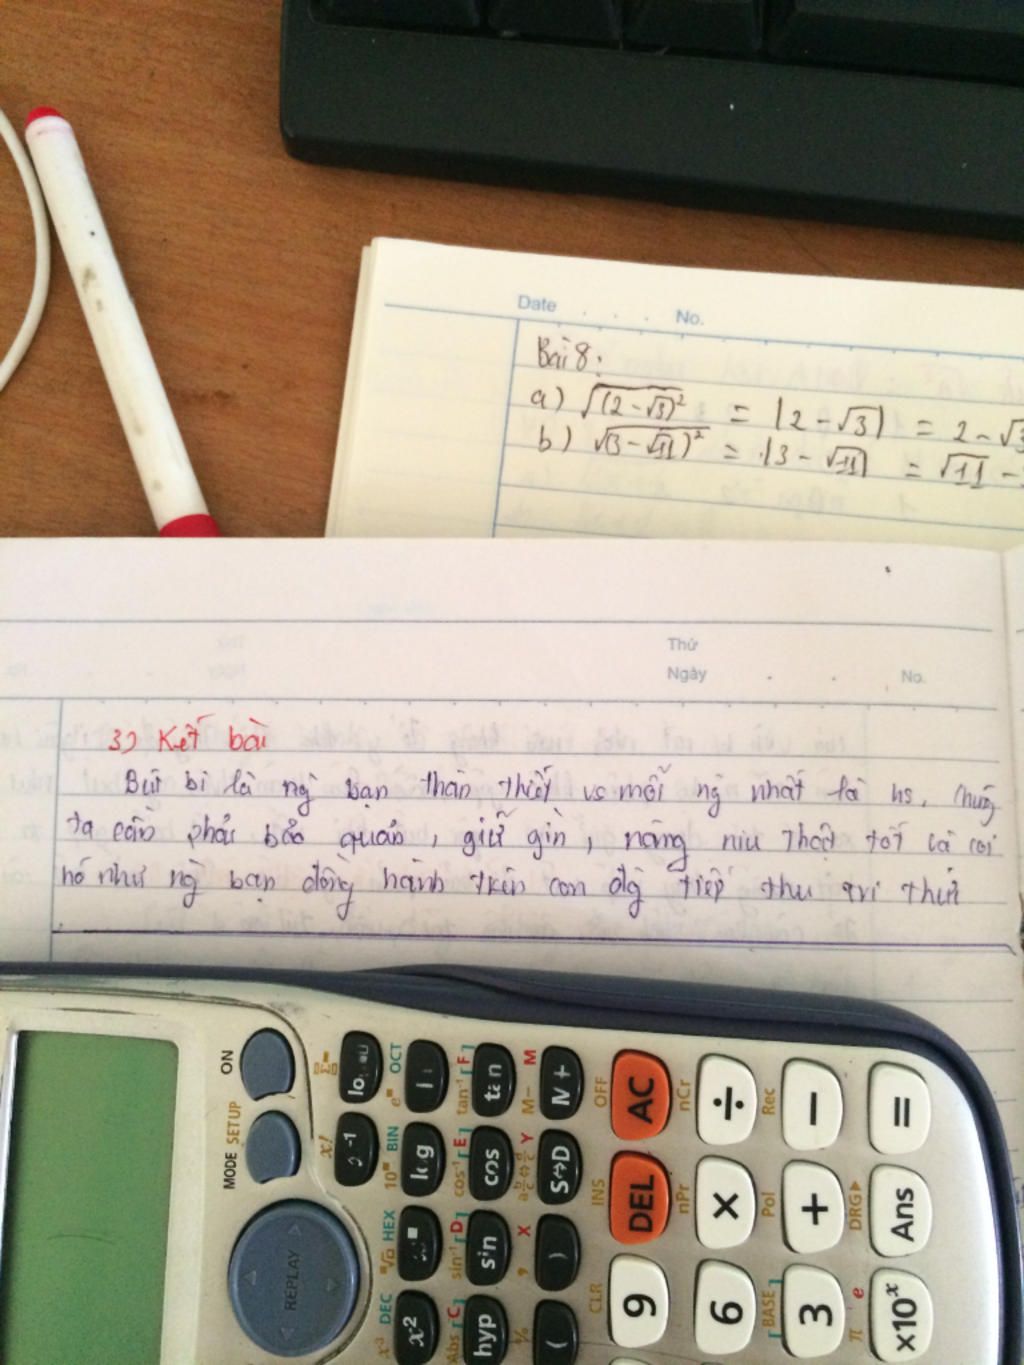 Date No.
Bài 8:
a) √(2-√3)² = |2-√3| = 2-√3
b) √(3-√11)² = |3-√11| = √11 -
Thứ
Ngày No.
3) Kết bài
Bút bi là ng` bạn thân thiết vs mỗi ng nhất là hs. Chúng
ta cần phải bảo quản, giữ gìn, nâng niu thật tốt và coi
nó như ng` bạn đồng hành trên con đg` tiếp thu tri thức
ON
MODE SETUP
REPLAY
x! Σ
x⁻¹
DEC HEX BIN OCT
x³ 10 e
x² log ln
Abs C sin⁻¹ D cos⁻¹ E tan⁻¹ F
hyp sin cos tan
, X Y M- M
( ) S⇔D M+
CLR INS OFF
9 DEL AC
nPr nCr
6 × ÷
[BASE] Pol Rec
3 + −
π e DRG▶
×10ˣ Ans =